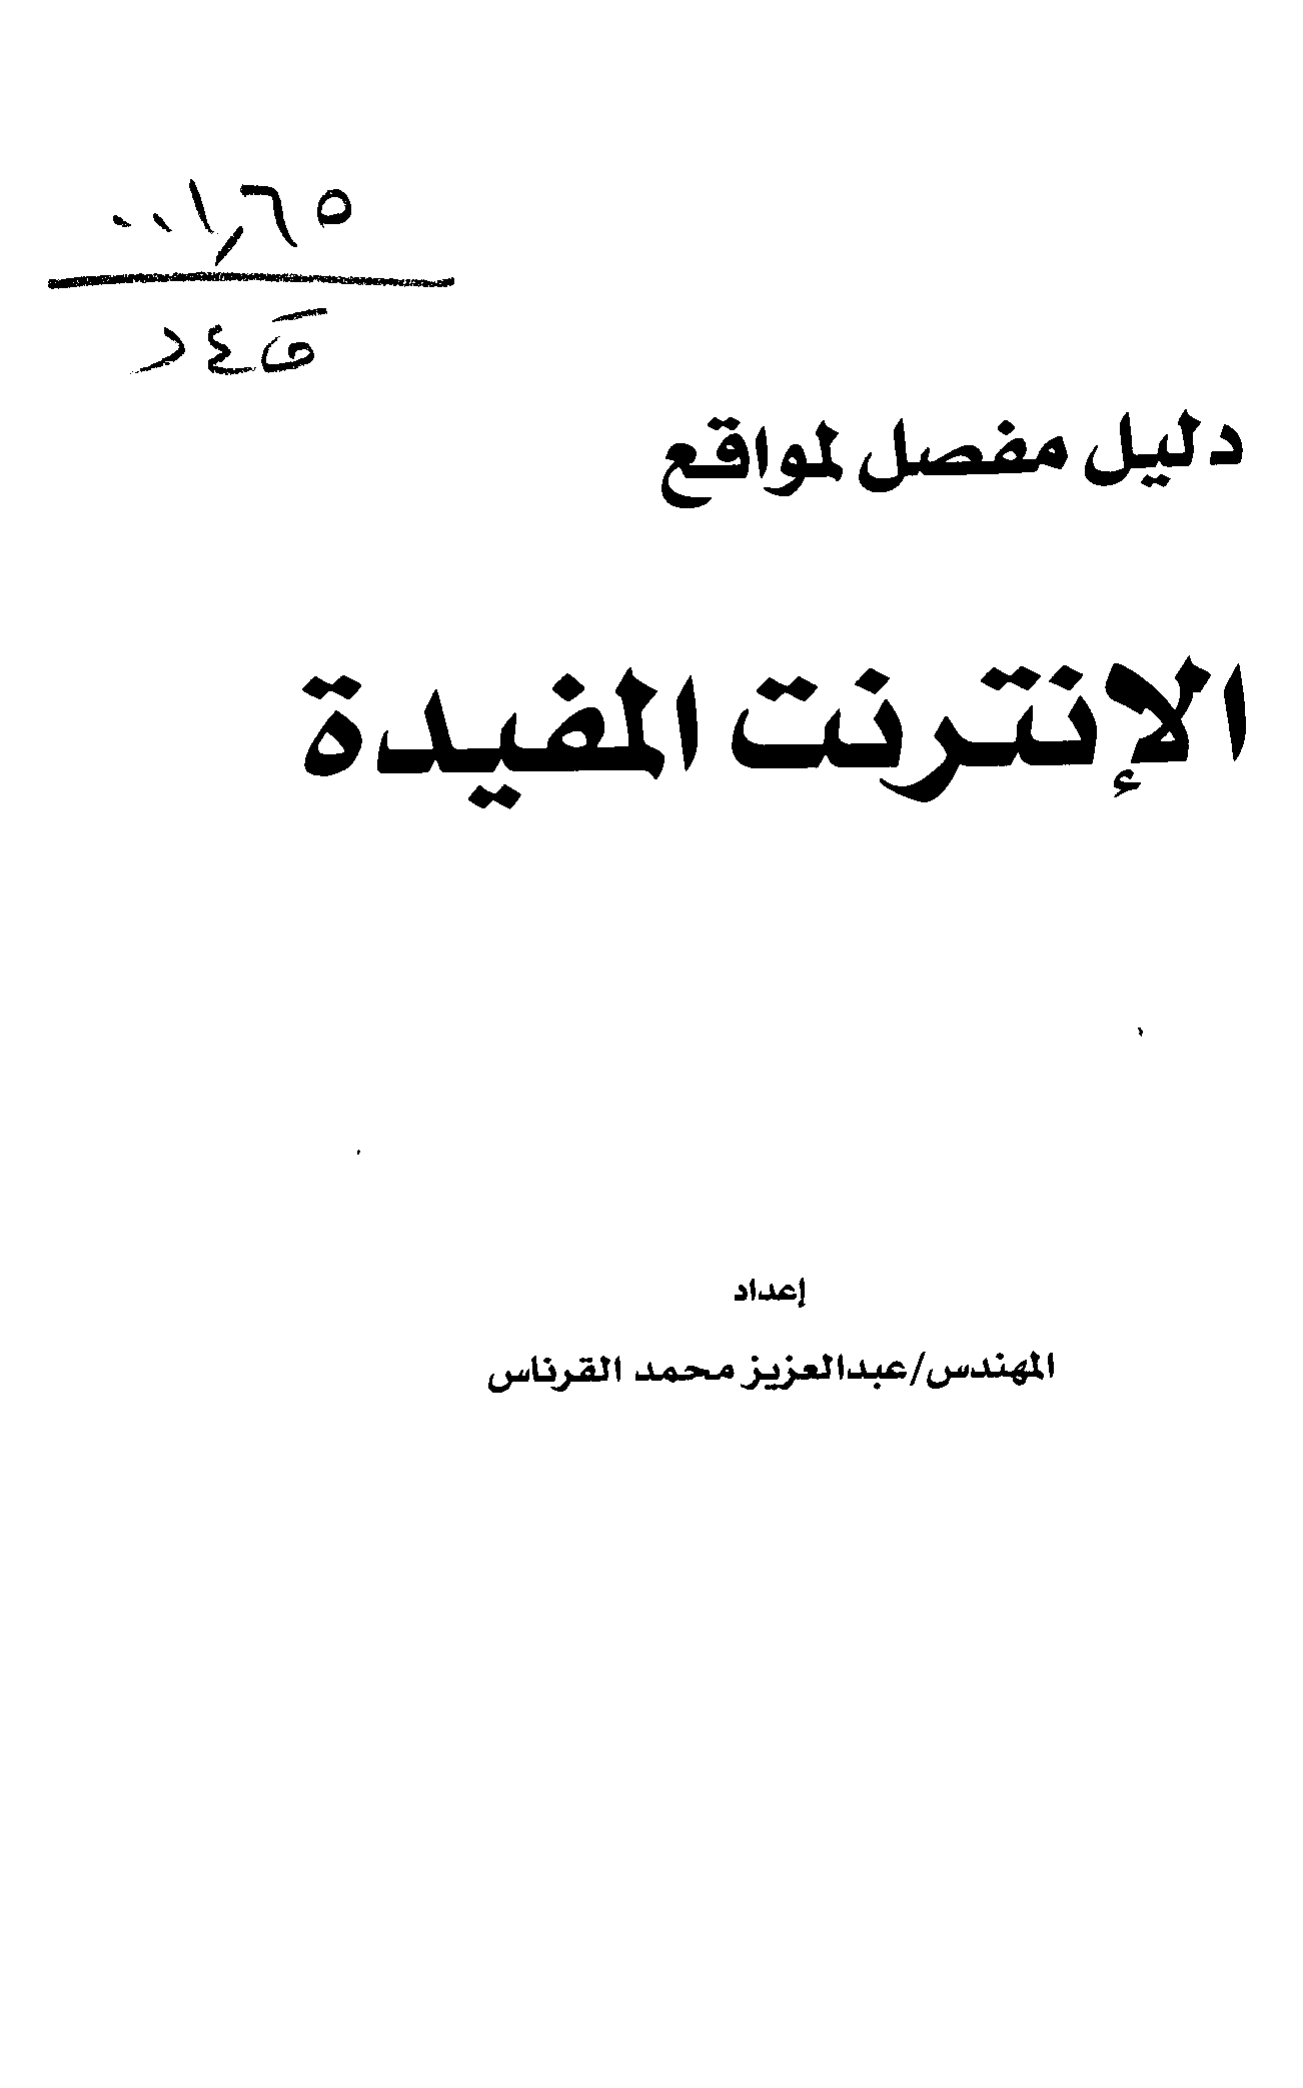 ٠٠١,٦٥
دليل مفصل لمواقع
الإنترنت المفيدة
إعداد
المهندس/عبدالعزيز محمد القرناس